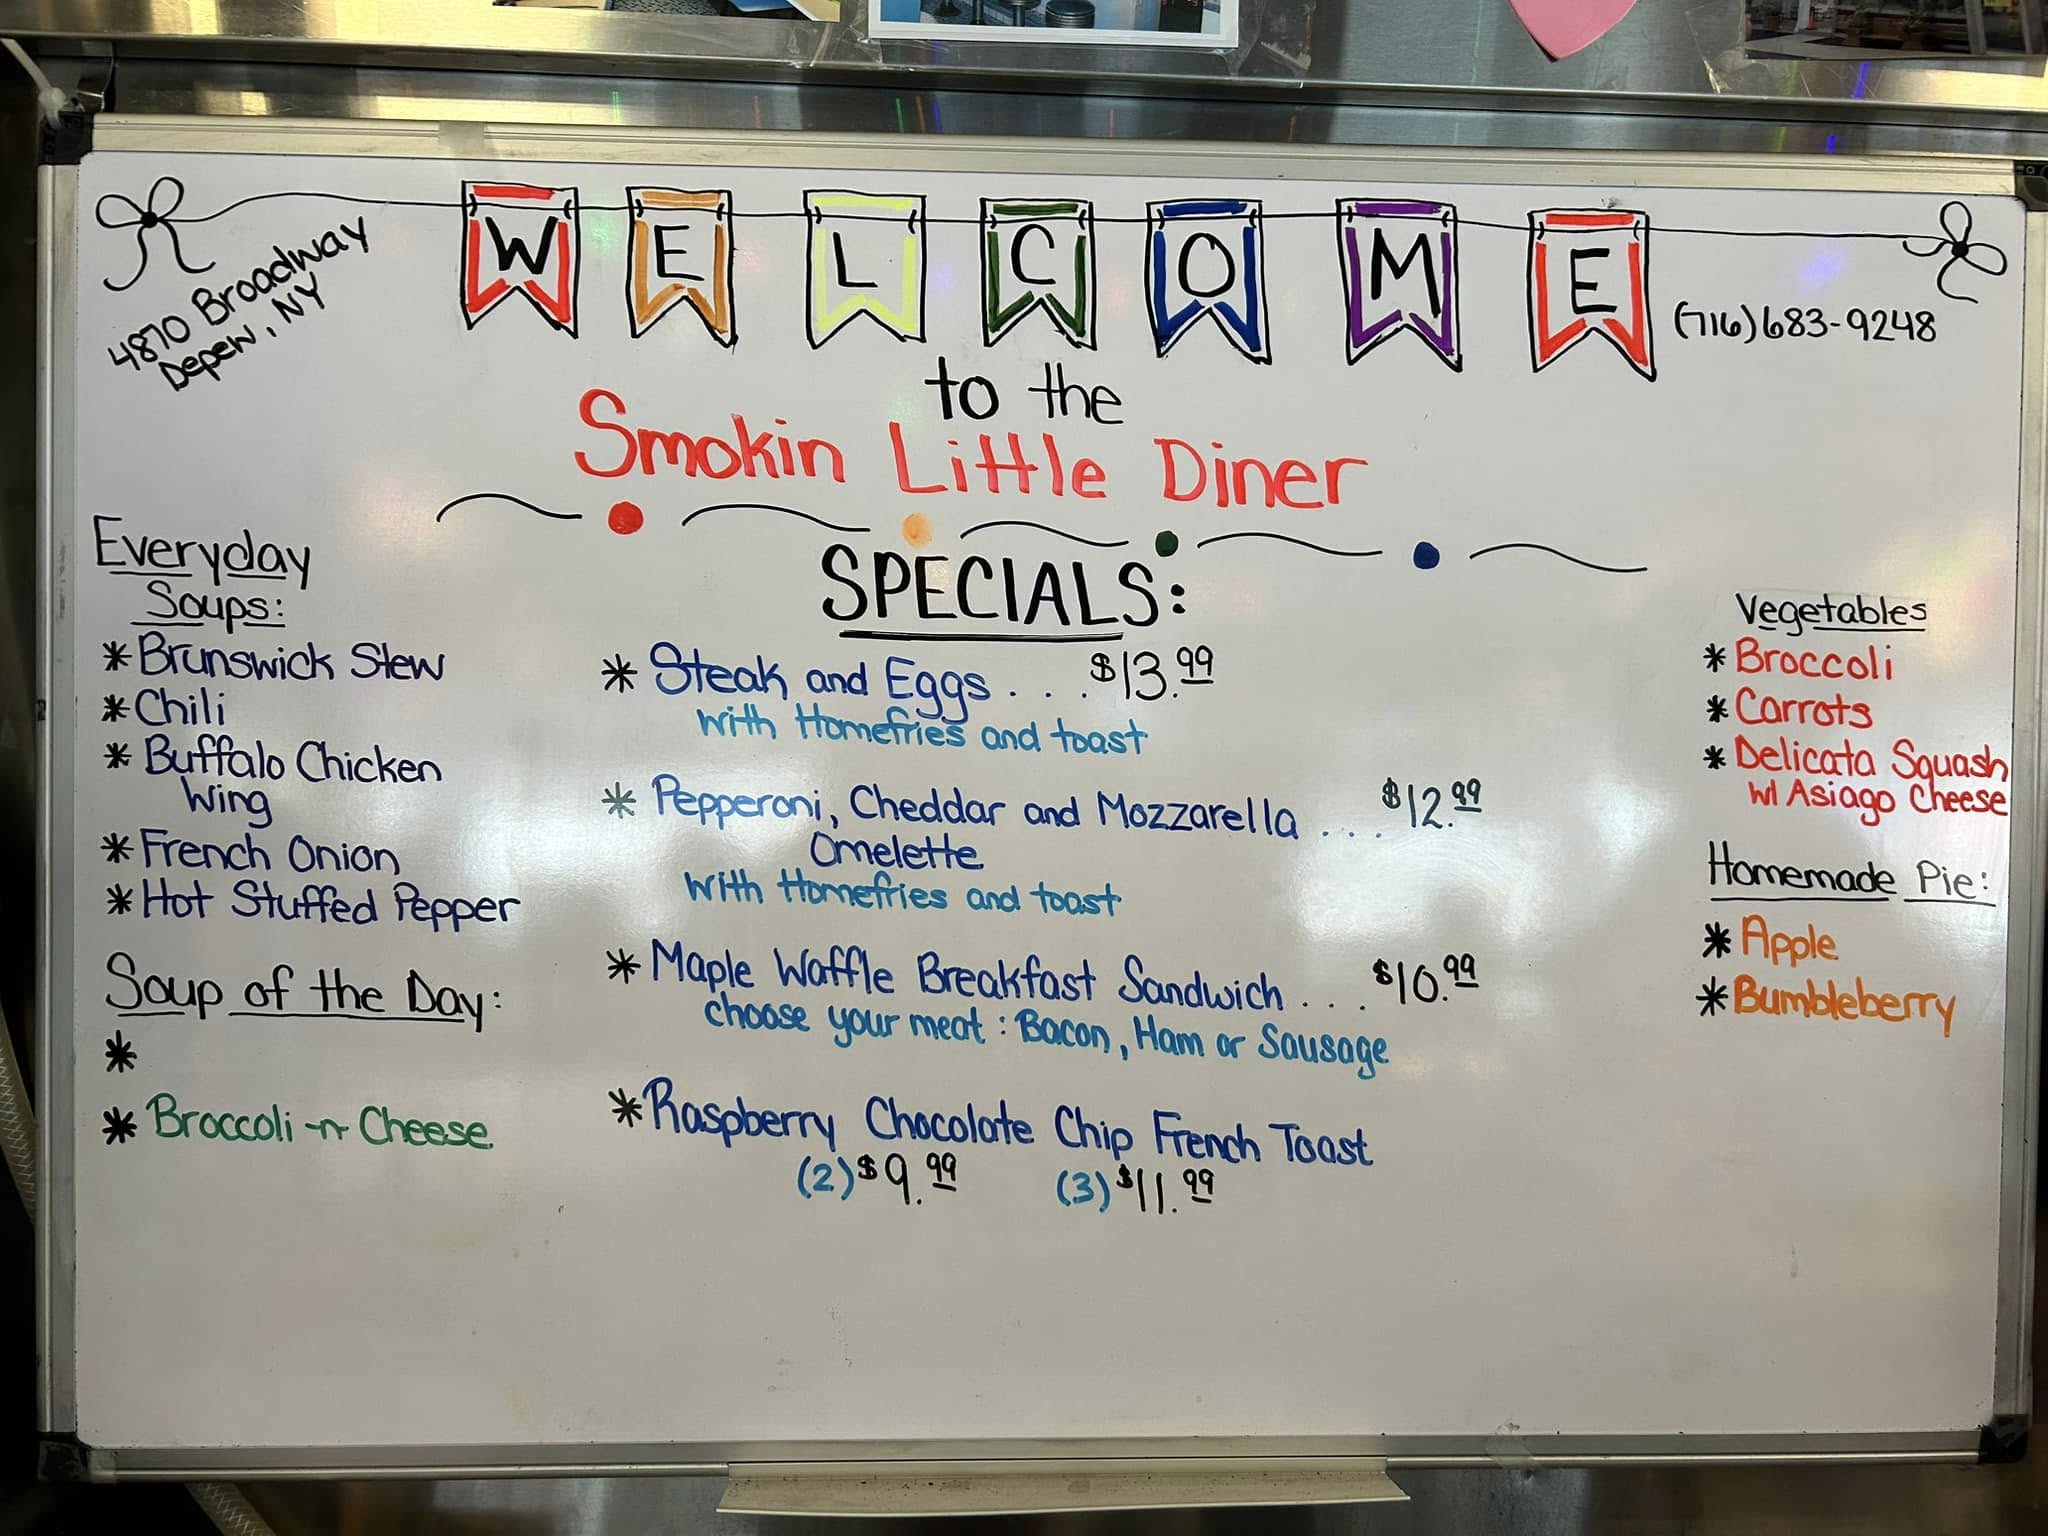 WELCOME
4870 Broadway
Depew, NY
(716)683-9248
to the
Smokin Little Diner
Everyday
Soups:
* Brunswick Stew
* Chili
* Buffalo Chicken
Wing
* French Onion
* Hot Stuffed Pepper
Soup of the Day:
*
* Broccoli-n-Cheese
SPECIALS:
* Steak and Eggs . . . . $13.99
with Homefries and toast
* Pepperoni, Cheddar and Mozzarella . . . . $12.99
Omelette
with Homefries and toast
* Maple Waffle Breakfast Sandwich . . . . $10.99
choose your meat: Bacon, Ham or Sausage
* Raspberry Chocolate Chip French Toast
(2) $9.99 (3) $11.99
Vegetables
* Broccoli
* Carrots
* Delicata Squash
w/ Asiago Cheese
Homemade Pie:
* Apple
* Bumbleberry